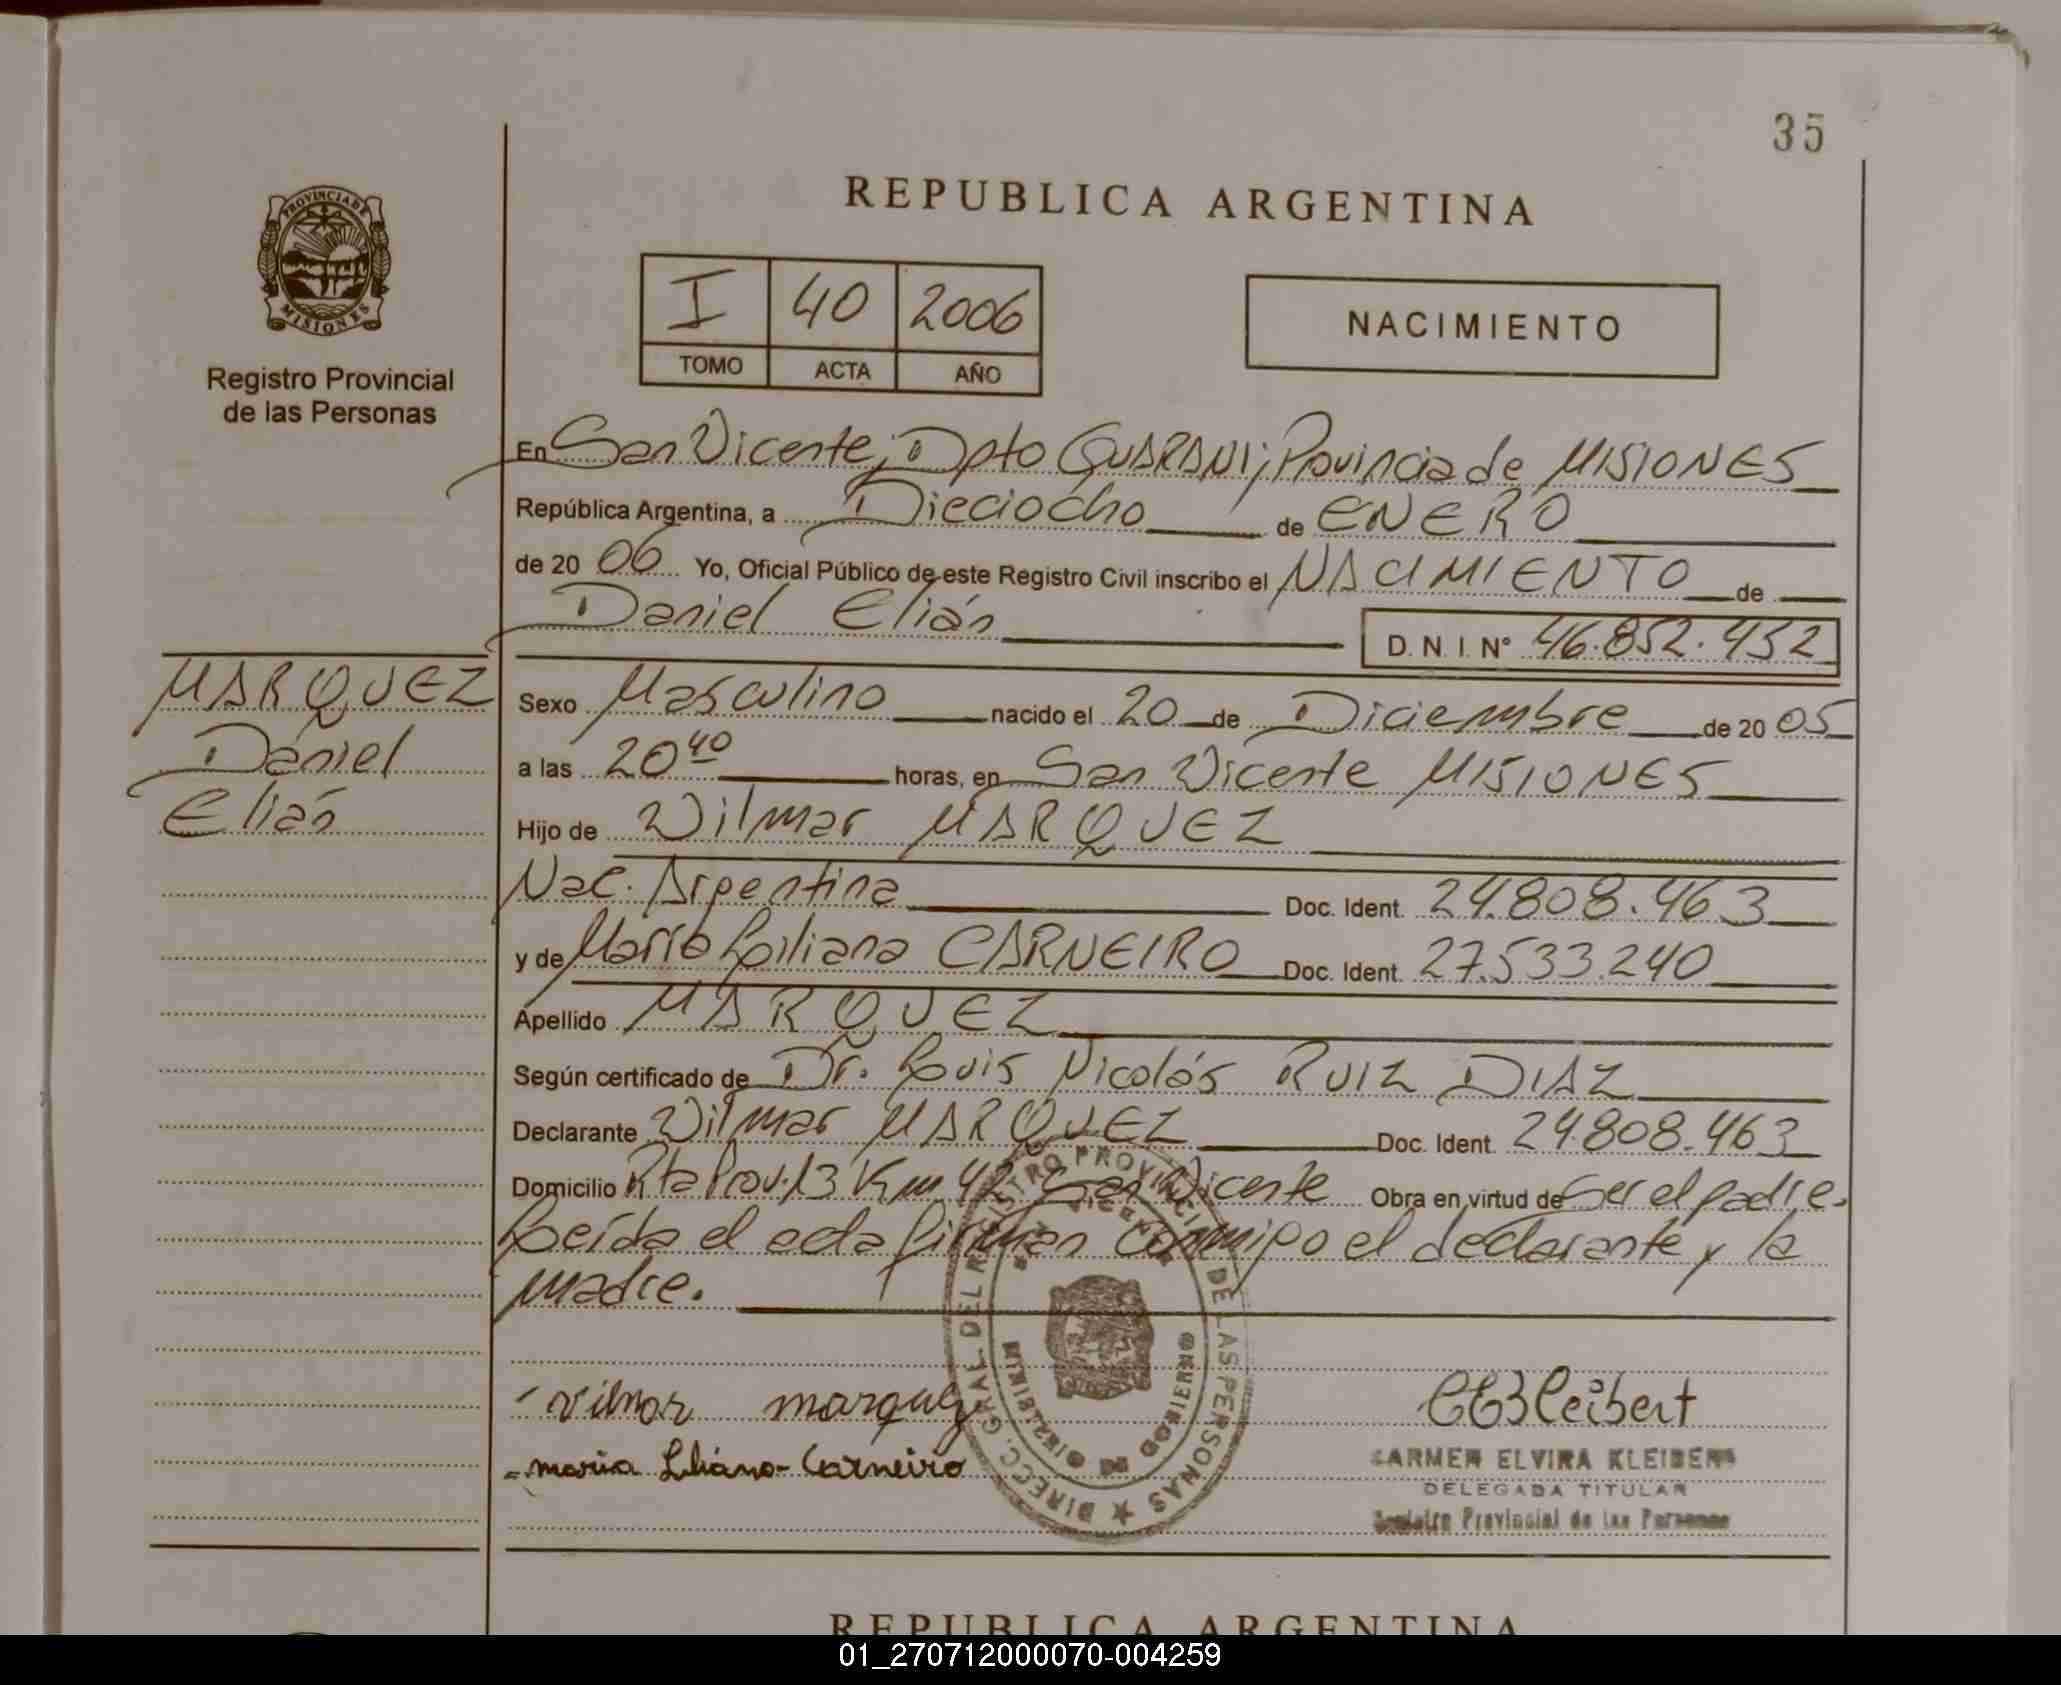 35
PROVINCIA DE
MISIONES
Registro Provincial
de las Personas
REPUBLICA ARGENTINA
I 40 2006
TOMO ACTA AÑO
NACIMIENTO
En San Vicente, Dpto GUARANI, Provincia de MISIONES
República Argentina, a Dieciocho de ENERO
de 20 06 Yo, Oficial Público de este Registro Civil inscribo el NACIMIENTO de
Daniel Elián
D. N. I. N° 46.852.452
MARQUEZ
Daniel
Elián
Sexo Masculino nacido el 20 de Diciembre de 20 05
a las 20 40 horas, en San Vicente MISIONES
Hijo de Wilmar MARQUEZ
Nac. Argentina Doc. Ident. 24.808.463
y de María Liliana CARNEIRO Doc. Ident. 27.533.240
Apellido MARQUEZ
Según certificado de Dr. Luis Nicolás RUIZ DIAZ
Declarante Wilmar MARQUEZ Doc. Ident. 24.808.463
Domicilio Rta Prov. 13 Km 42 San Vicente Obra en virtud de ser el padre.
Leída el acta firman conmigo el declarante y la
madre.
DIRECC. GRAL DEL REGISTRO PROVINCIAL DE LAS PERSONAS
SAN VICENTE
MINISTERIO DE GOBIERNO
Vilmar marquez
maria Liliana Carneiro
CEKleibert
CARMEN ELVIRA KLEIBERT
DELEGADA TITULAR
Registro Provincial de las Personas
REPUBLICA ARGENTINA
01_270712000070-004259